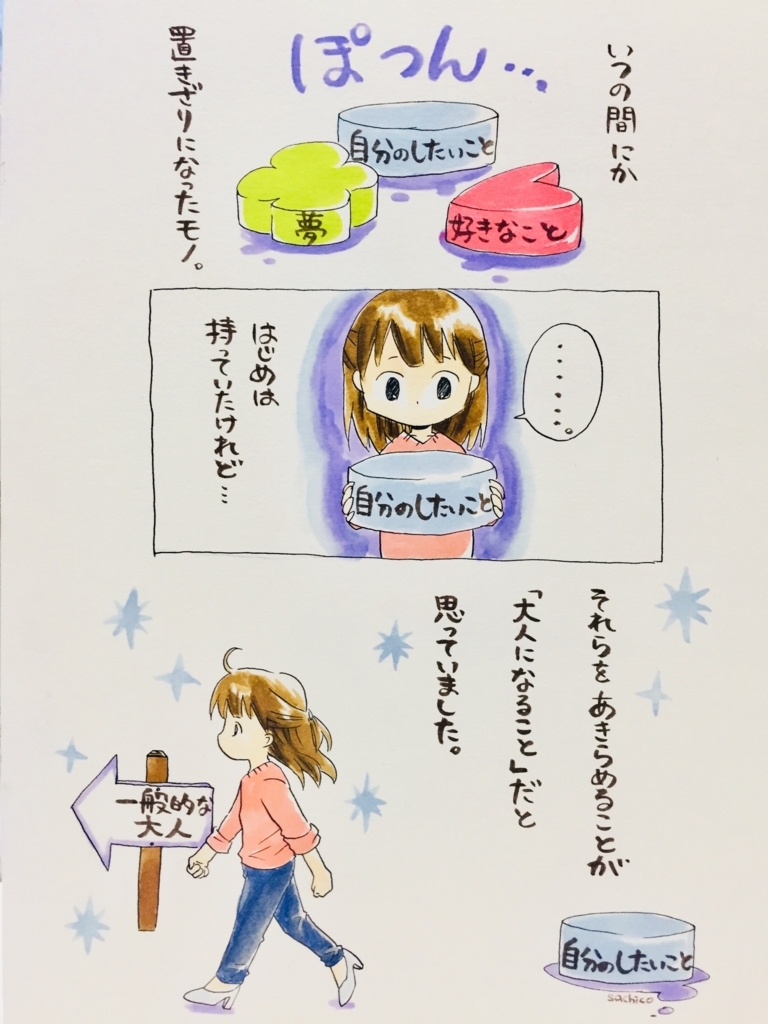 いつの間にか
ぽつん…
自分のしたいこと
夢
好きなこと
置きざりになったモノ。
・・・・・・。
自分のしたいこと
はじめは
持っていたけれど…
それらをあきらめることが
「大人になること」だと
思っていました。
一般的な
大人
自分のしたいこと
sachico